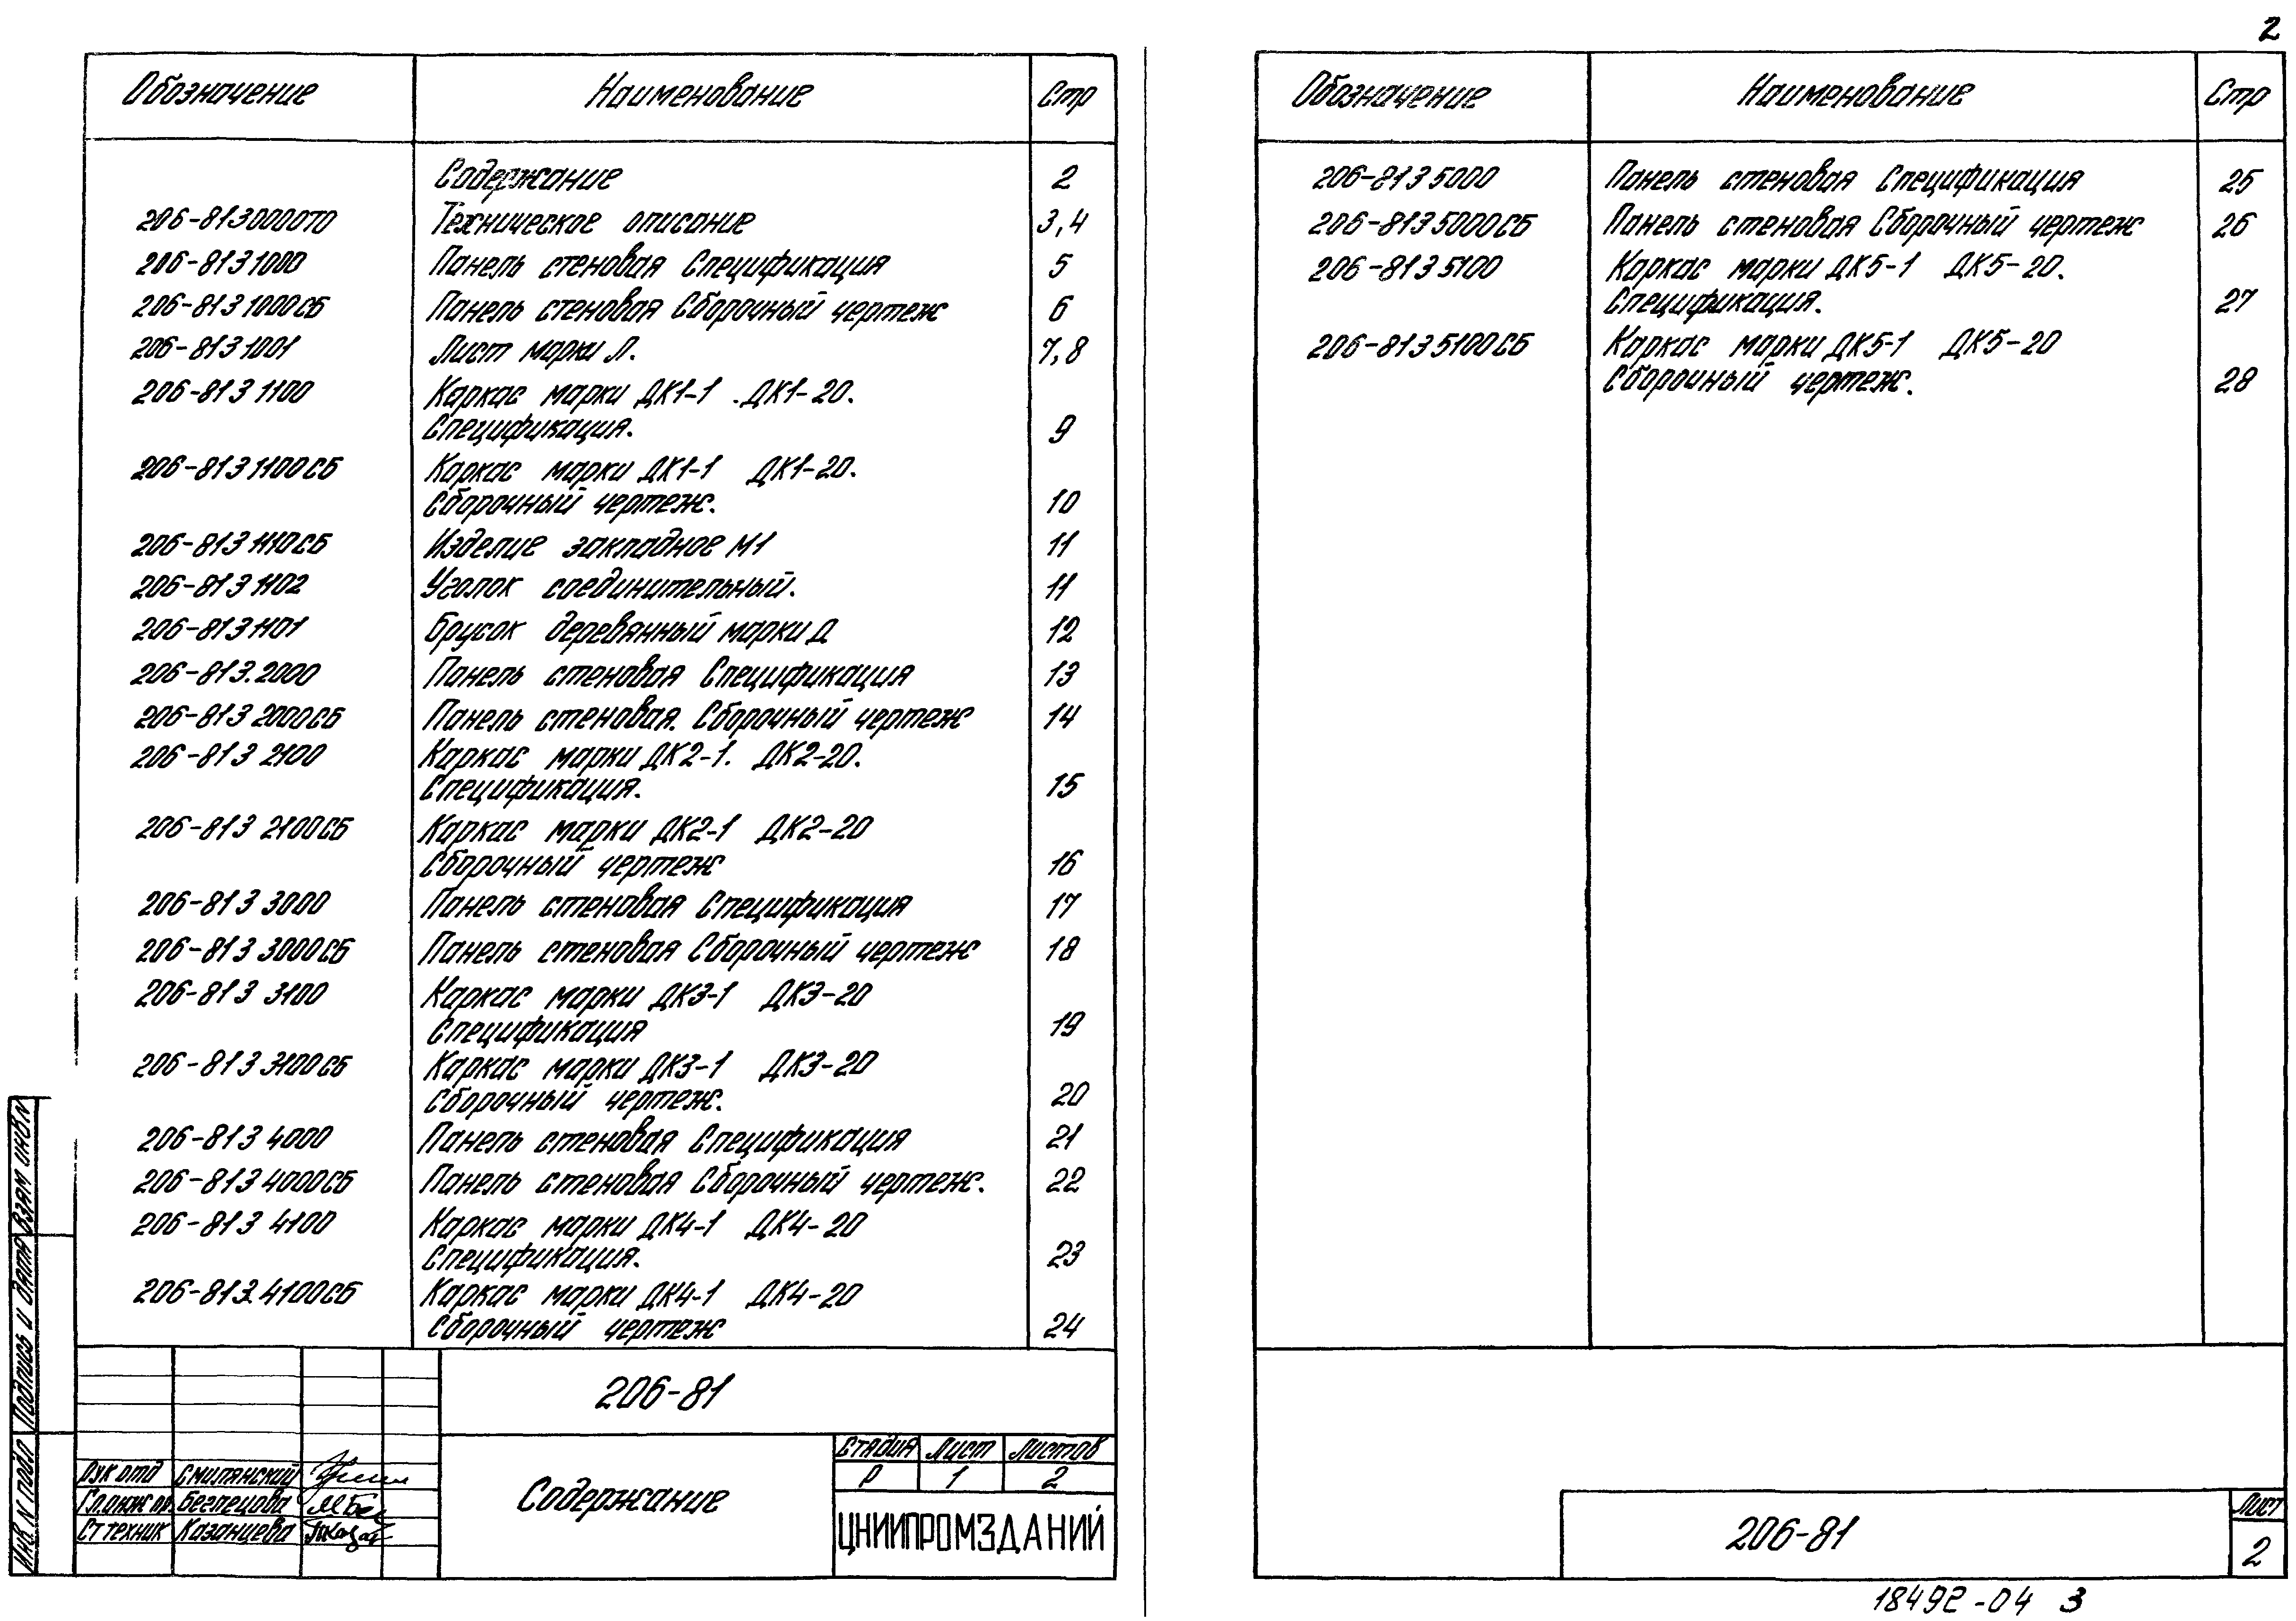 2
Обозначение Наименование Стр
Содержание 2
206-813 0000ТО Техническое описание 3,4
206-813 1000 Панель стеновая Спецификация 5
206-813 1000СБ Панель стеновая Сборочный чертеж 6
206-813 1001 Лист марки Л. 7,8
206-813 1100 Каркас марки ДК1-1 . ДК1-20.
Спецификация. 9
206-813 1100СБ Каркас марки ДК1-1 ДК1-20.
Сборочный чертеж. 10
206-813 1110СБ Изделие закладное М1 11
206-813 1102 Уголок соединительный. 11
206-813 1101 Брусок деревянный марки Д 12
206-813.2000 Панель стеновая Спецификация 13
206-813 2000СБ Панель стеновая. Сборочный чертеж 14
206-813 2100 Каркас марки ДК2-1. ДК2-20.
Спецификация. 15
206-813 2100СБ Каркас марки ДК2-1 ДК2-20
Сборочный чертеж 16
206-813 3000 Панель стеновая Спецификация 17
206-813 3000СБ Панель стеновая Сборочный чертеж 18
206-813 3100 Каркас марки ДК3-1 ДК3-20
Спецификация 19
206-813 3100СБ Каркас марки ДК3-1 ДК3-20
Сборочный чертеж. 20
206-813 4000 Панель стеновая Спецификация 21
206-813 4000СБ Панель стеновая Сборочный чертеж. 22
206-813 4100 Каркас марки ДК4-1 ДК4-20
Спецификация. 23
206-813.4100СБ Каркас марки ДК4-1 ДК4-20
Сборочный чертеж 24
206-81
Содержание
Стадия Лист Листов
Р 1 2
ЦНИИПРОМЗДАНИЙ
Рук отд Смилянский
Гл инж пр. Беспецова
Ст техник Казанцева
Инв N подл Подпись и дата Взам инв N
Обозначение Наименование Стр
206-813 5000 Панель стеновая Спецификация 25
206-813 5000СБ Панель стеновая Сборочный чертеж 26
206-813 5100 Каркас марки ДК5-1 ДК5-20.
Спецификация. 27
206-813 5100СБ Каркас марки ДК5-1 ДК5-20
Сборочный чертеж. 28
206-81
Лист
2
18492-04 3